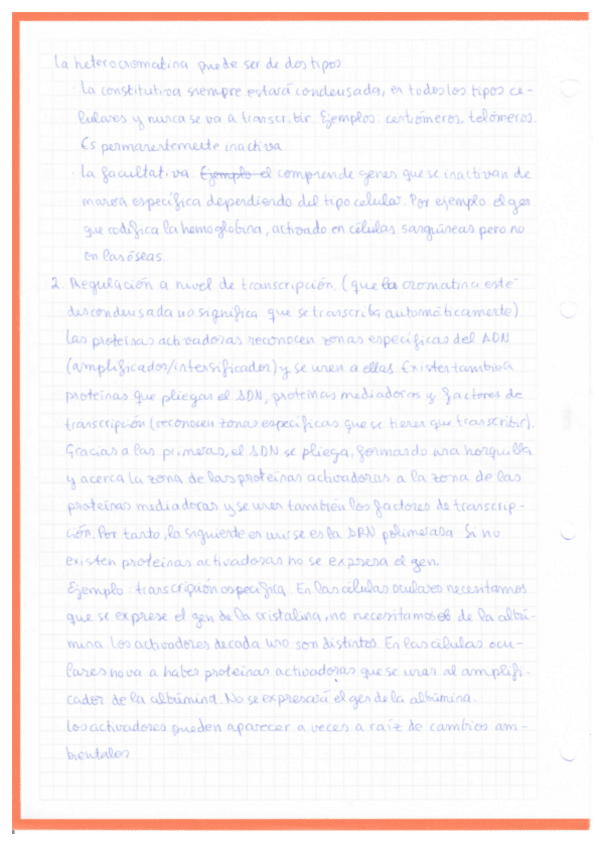 La heterocromatina puede ser de dos tipos
· La constitutiva siempre estará condensada, en todos los tipos ce-
lulares y nunca se va a transcribir. Ejemplos: centrómeros, telómeros.
Es permanentemente inactiva
· La facultativa. Ejemplo el comprende genes que se inactivan de
manera específica dependiendo del tipo celular. Por ejemplo el gen
que codifica la hemoglobina, activado en células sanguíneas pero no
en las óseas.
2. Regulación a nivel de transcripción. (que la cromatina esté
descondensada no significa que se transcriba automáticamente)
Las proteínas activadoras reconocen zonas específicas del ADN
(amplificador/intensificador) y se unen a ellas. Existen también
proteínas que pliegan el ADN, proteínas mediadoras y factores de
transcripción (reconocen zonas específicas que se tienen que transcribir).
Gracias a las primeras, el ADN se pliega, formando una horquilla
y acerca la zona de las proteínas activadoras a la zona de las
proteínas mediadoras y se unen también los factores de transcrip-
ción. Por tanto, la siguiente en unirse es la ARN polimerasa. Si no
existen proteínas activadoras no se expresa el gen.
Ejemplo: transcripción específica. En las células oculares necesitamos
que se exprese el gen de la cristalina, no necesitamos el de la albú-
mina. Los activadores de cada uno son distintos. En las células ocu-
lares no va a haber proteínas activadoras que se unan al amplifi-
cador de la albúmina. No se expresará el gen de la albúmina.
Los activadores pueden aparecer a veces a raíz de cambios am-
bientales